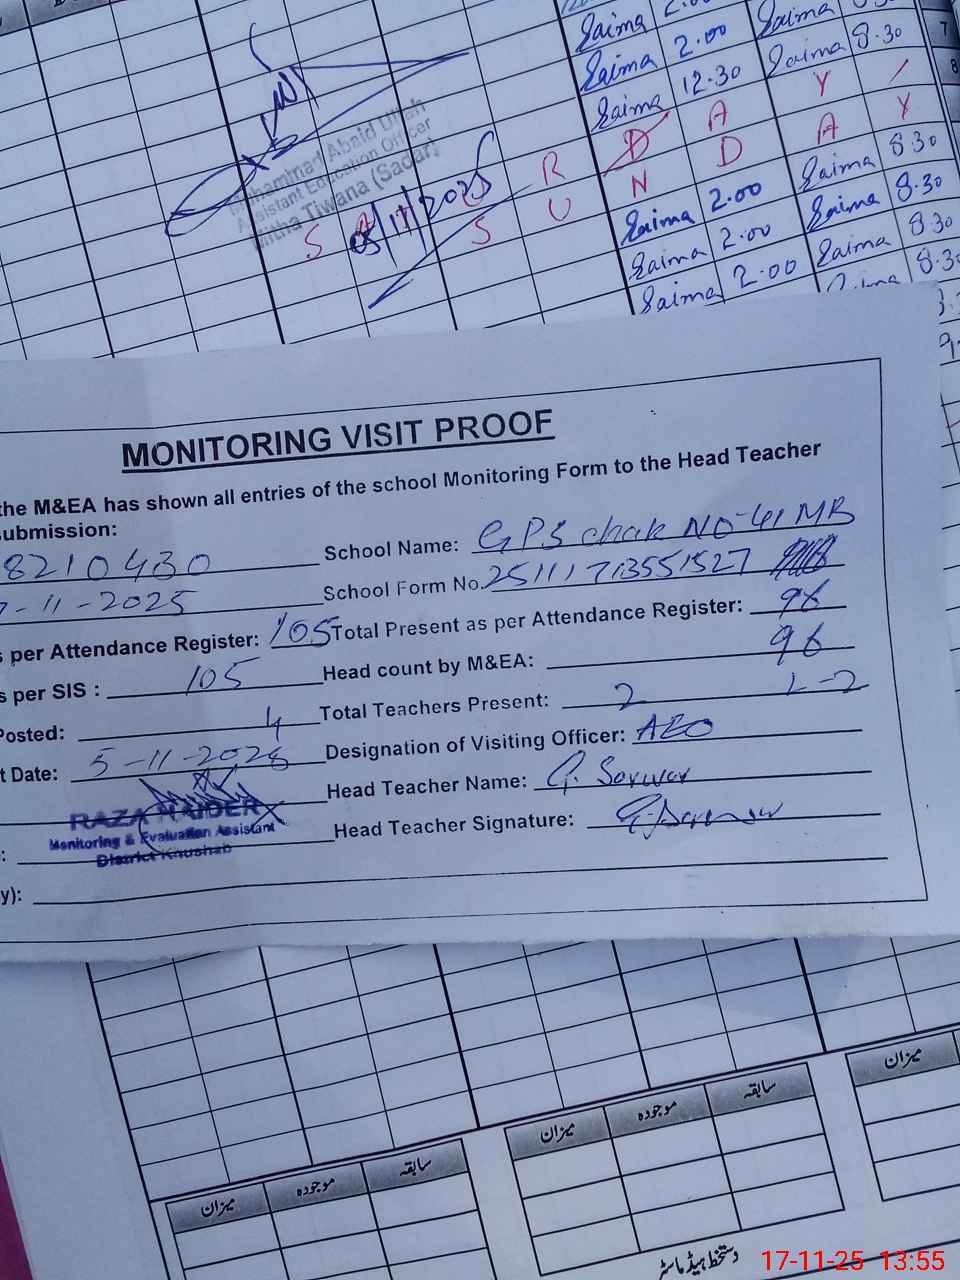 Saima 2.00 Saima
Saima 2.00 Saima 8.30 7
Saima 12.30 Saima 8.30 8
Muhammad Abaid Ullah
Assistant Education Officer
Mitha Tiwana (Sadar)
05/11/2025
S R D A Y /
S U N D A Y
Saima 2.00 Saima 8.30
Saima 2.00 Saima 8.30
Saima 2.00 Saima 8.30
8.3
MONITORING VISIT PROOF
the M&EA has shown all entries of the school Monitoring Form to the Head Teacher
submission:
8210430 School Name: GPS chak NO-41 MB
7-11-2025 School Form No. 25111713551527
s per Attendance Register: 105 Total Present as per Attendance Register: 96
s per SIS : 105 Head count by M&EA: 96
Posted: 4 Total Teachers Present: 2 L-2
t Date: 5-11-2025 Designation of Visiting Officer: AEO
Head Teacher Name: G. Sarwar
RAZA HAIDER
Monitoring & Evaluation Assistant
District Khushab
: Head Teacher Signature:
y):
میزان موجودہ سابقہ میزان موجودہ سابقہ میزان
دستخط ہیڈ ماسٹر
17-11-25 13:55